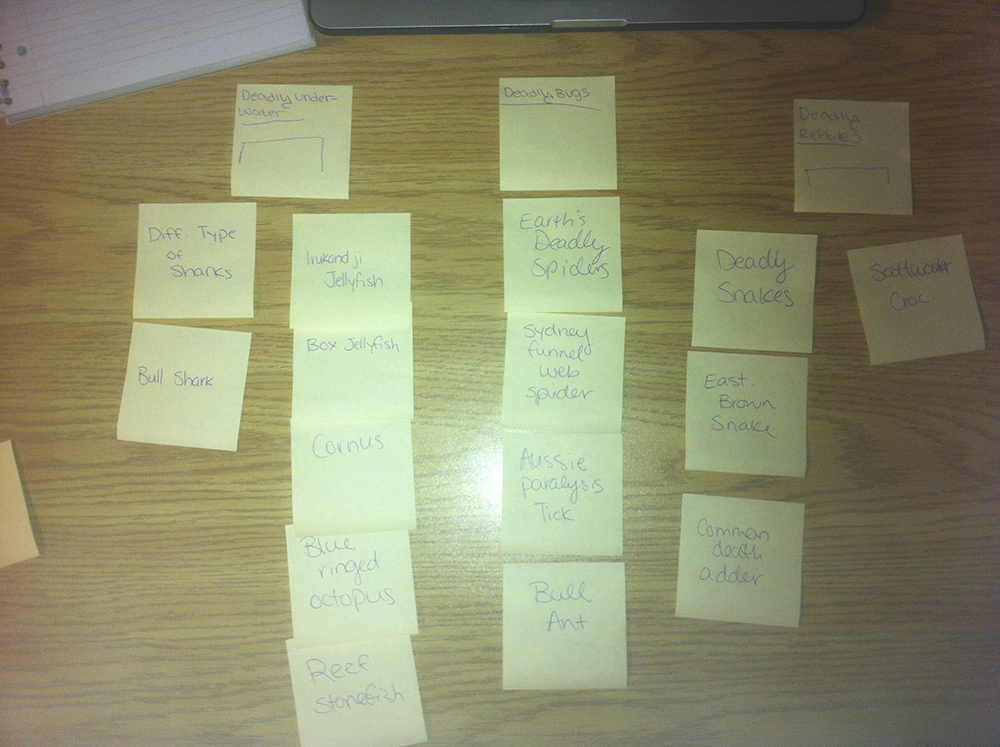 Deadly Under-
Water
Diff. Type
of
Sharks
Bull Shark
Irukandji
Jellyfish
Box Jellyfish
Cornus
Blue
ringed
octopus
Reef
Stonefish
Deadly Bugs
Earth's
Deadly
Spiders
Sydney
funnel
web
spider
Aussie
paralysis
Tick
Bull
Ant
Deadly
Reptiles
Deadly
Snakes
East.
Brown
Snake
Common
death
adder
Croc